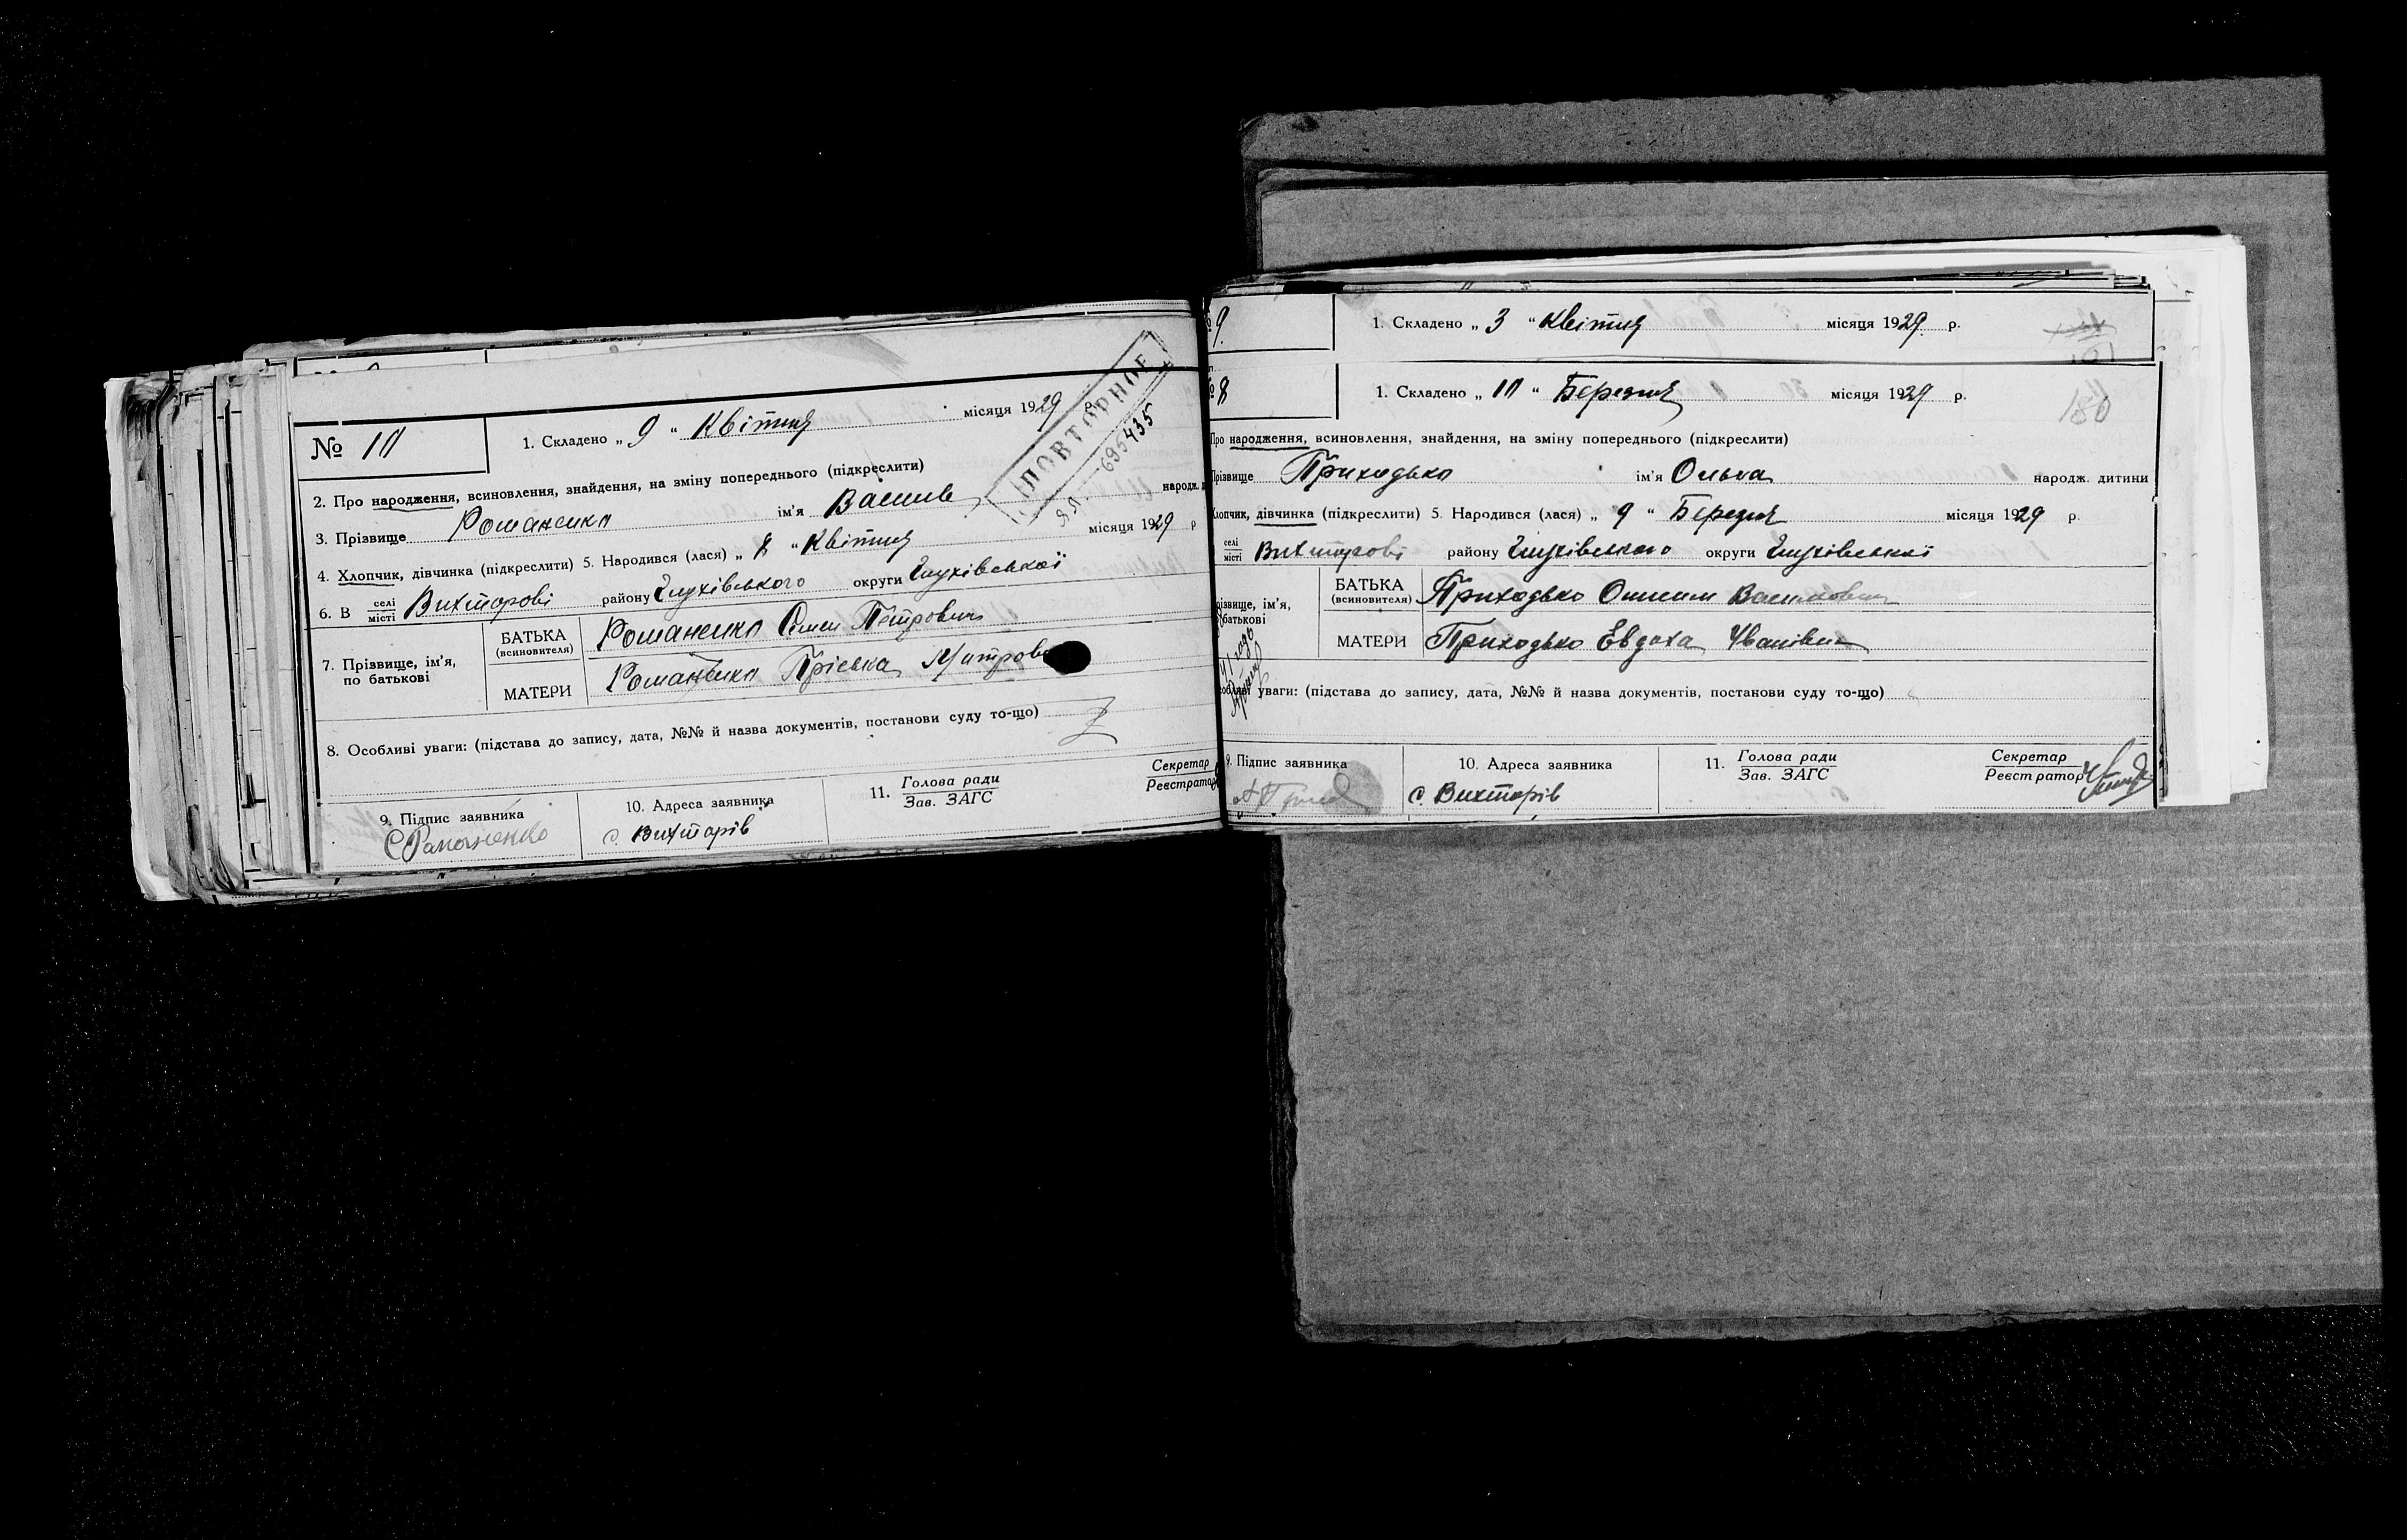 № 10
1. Складено „ 9 “ Квітня місяця 1929 р
ПОВТОРНОЕ
ЯЛ. 695435
2. Про народження, всиновлення, знайдення, на зміну попереднього (підкреслити)
3. Прізвище Романенко ім'я Василь народж. д
4. Хлопчик, дівчинка (підкреслити) 5. Народився (лася) „ 8 “ Квітня місяця 1929 р
6. В селі місті Вихторові району Глухівського округи Глухівської
7. Прізвище, ім'я, по батькові
БАТЬКА (всиновителя) Романенко Семен Петрович
МАТЕРИ Романенко Пріська Митров
8. Особливі уваги: (підстава до запису, дата, №№ й назва документів, постанови суду то-що)
9. Підпис заявника 10. Адреса заявника 11. Голова ради Зав. ЗАГС Секретар Реєстратор
С Романенко с. Вихторів
№ 9. 1. Складено „ 3 “ Квітня місяця 1929. р.
№ 8 1. Складено „ 10 “ Березня місяця 1929 р.
180
Про народження, всиновлення, знайдення, на зміну попереднього (підкреслити)
Прізвище Приходько ім'я Ольга народж. дитини
Хлопчик, дівчинка (підкреслити) 5. Народився (лася) „ 9 “ Березня місяця 1929 р.
селі місті Вихторові району Глухівського округи Глухівської
різвище, ім'я, батькові
БАТЬКА (всиновителя) Приходько Онисим Васильович
МАТЕРИ Приходько Евдоха Іванівна
собливі уваги: (підстава до запису, дата, №№ й назва документів, постанови суду то-що)
9. Підпис заявника 10. Адреса заявника 11. Голова ради Зав. ЗАГС Секретар Реєстратор
с. Вихторів